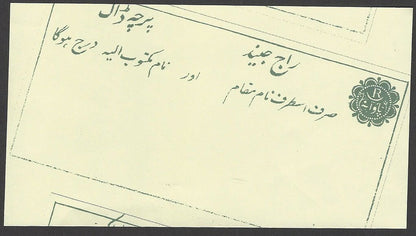 پرچہ ڈاک
راج جیند
صرف اسطرف نام مقام اور نام مکتوب الیہ درج ہوگا
R